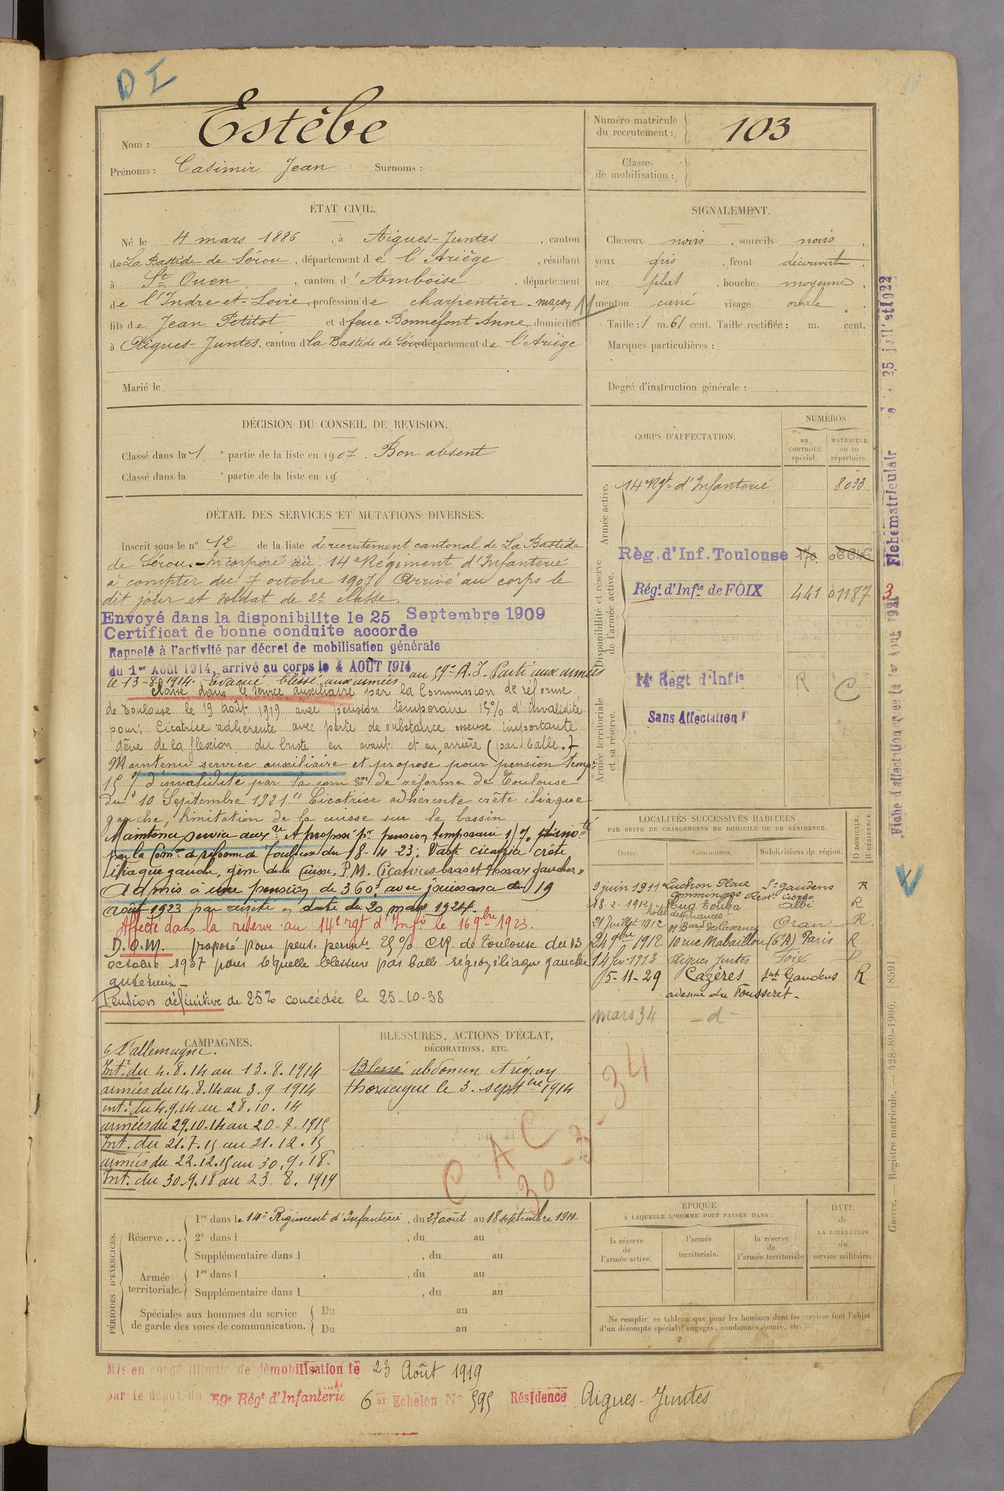 DI
Nom : Estèbe
Prénoms : Casimir Jean Surnoms :
Numéro matricule du recrutement : 103
Classe de mobilisation :
ÉTAT CIVIL.
Né le 4 mars 1886, à Aigues-Juntes, canton
de La Bastide de Sérou, département de l'Ariège, résidant
à St Ouen, canton d'Amboise, département
de l'Indre-et-Loire, profession de charpentier - maçon
fils de Jean Petitot et de feue Bonnefont Anne, domiciliés
à Aigues-Juntes, canton d la Bastide de Sérou département de l'Ariège
Marié le
SIGNALEMENT.
Cheveux noirs, sourcils noirs
yeux gris, front découvert
nez plat, bouche moyenne
menton carré visage ovale
Taille : 1 m. 61 cent. Taille rectifiée : m. cent.
Marques particulières :
Degré d'instruction générale :
DÉCISION DU CONSEIL DE REVISION.
Classé dans la 1e partie de la liste en 1907. Bon absent
Classé dans la e partie de la liste en 19
DÉTAIL DES SERVICES ET MUTATIONS DIVERSES.
Inscrit sous le n° 12 de la liste de recrutement cantonal de La Bastide
de Sérou. Incorporé au 14e Régiment d'Infanterie
à compter du 7 octobre 1907. Arrivé au corps le
dit jour et soldat de 2e classe.
Envoyé dans la disponibilité le 25 Septembre 1909
Certificat de bonne conduite accordé
Rappelé à l'activité par décret de mobilisation générale
du 1er Août 1914, arrivé au corps le 4 AOÛT 1914 au 59e R.I. Parti aux armées
le 13-8-1914. Evacué blessé aux armées
Classé dans le service auxiliaire par la Commission de réforme
de Toulouse le 19 août 1919 avec pension temporaire 15% d'invalidité
pour : Cicatrice adhérente avec perte de substance osseuse importante
Gêne de la flexion du buste en avant et en arrière (par balle.)
Maintenu service auxiliaire et proposé pour pension temp.
15% d'invalidité par la com on de réforme de Toulouse
du 10 Septembre 1921 "Cicatrice adhérente crête iliaque
gauche, limitation de la cuisse sur le bassin
Maintenu service aux re. A proposé pr pension temporaire
par la Comon de réforme de Toulouse du 18-14-23: Vaste cicatrice crête
iliaque gauche, gêne de la cuisse. P.M. Cicatrices bras et thorax gauches"
Admis à une pension de 360f avec jouissance du 19
août 1923 par arrêté en date du 20 mars 1924.
Affecté dans la réserve au 14e rgt d'Infie le 16 9bre 1923.
D.O.M. proposé pour pens. perm. 25% CR de Toulouse du 13
octobre 1937 pour séquelle blessure par balle région iliaque gauche
antérieure
Pension définitive de 25% concédée le 25-10-38
CORPS D'AFFECTATION.
NUMÉROS
au CONTRÔLE spécial.
MATRICULE ou au répertoire.
Armée active.
14e Rgt d'Infanterie 8033
Disponibilité et réserve de l'armée active.
Règ. d'Inf. Toulouse
Régt d'Infie de FOIX 441 01187
14e Régt d'Infie R C
Armée territoriale et sa réserve.
Sans Affectation
LOCALITÉS SUCCESSIVES HABITÉES
PAR SUITE DE CHANGEMENTS DE DOMICILE OU DE RÉSIDENCE.
Dates. Communes. Subdivisions de région. D DOMICILE. R RÉSIDENCE.
9 juin 1911 Luchon Place St gaudens R
28-2-1912 R
21 Juillet 1912 Oran R
24 9bre 1912 10 rue Mabaillon (6e A) Paris R
14 fév. 1913 Aigues Juntes Foix D
15-11-29 Cazères Sub Gaudens R
avenue du Fousseret
mars 34 - d -
CAMPAGNES.
C l'allemagne.
Intr du 4.8.14 au 13.8.1914
armées du 14.8.14 au 3.9.1914
intr du 4.9.14 au 28.10.14
armées du 29.10.14 au 20-7-1915
Int. du 21.7.15 au 21.12.15
armées du 22.12.15 au 30.9.18-
Int. du 30.9.18 au 23.8.1919
BLESSURES, ACTIONS D'ÉCLAT,
DÉCORATIONS, ETC.
Blessé abdomen région
thoracique le 3 septbre 1914
C A C
30-3-34
PÉRIODES D'EXERCICES.
Réserve ... 1re dans le 14e Régiment d'Infanterie, du 27 août au 18 septembre 1910.
2e dans l , du au
Supplémentaire dans l , du au
Armée territoriale. 1re dans l , du au
Supplémentaire dans l , du au
Spéciales aux hommes du service de garde des voies de communication. Du au
Du au
ÉPOQUE
À LAQUELLE L'HOMME DOIT PASSER DANS :
la réserve de l'armée active.
l'armée territoriale.
la réserve de l'armée territoriale
DATE de LA LIBÉRATION du service militaire.
Ne remplir ce tableau que pour les hommes dont les services font l'objet
d'un décompte spécial (engagés, condamnés, omis, etc.).
Mis en congé illimité de démobilisation le 23 Août 1919
par le dépôt du 59e Rég. d'Infanterie 6e Echelon No 595 Résidence Aigues-Juntes
Fiche matriculaire 25 juillet 1922
Fiche d'affectation
Guerre. — Registre matricule. — 428-80-1906. [8591]